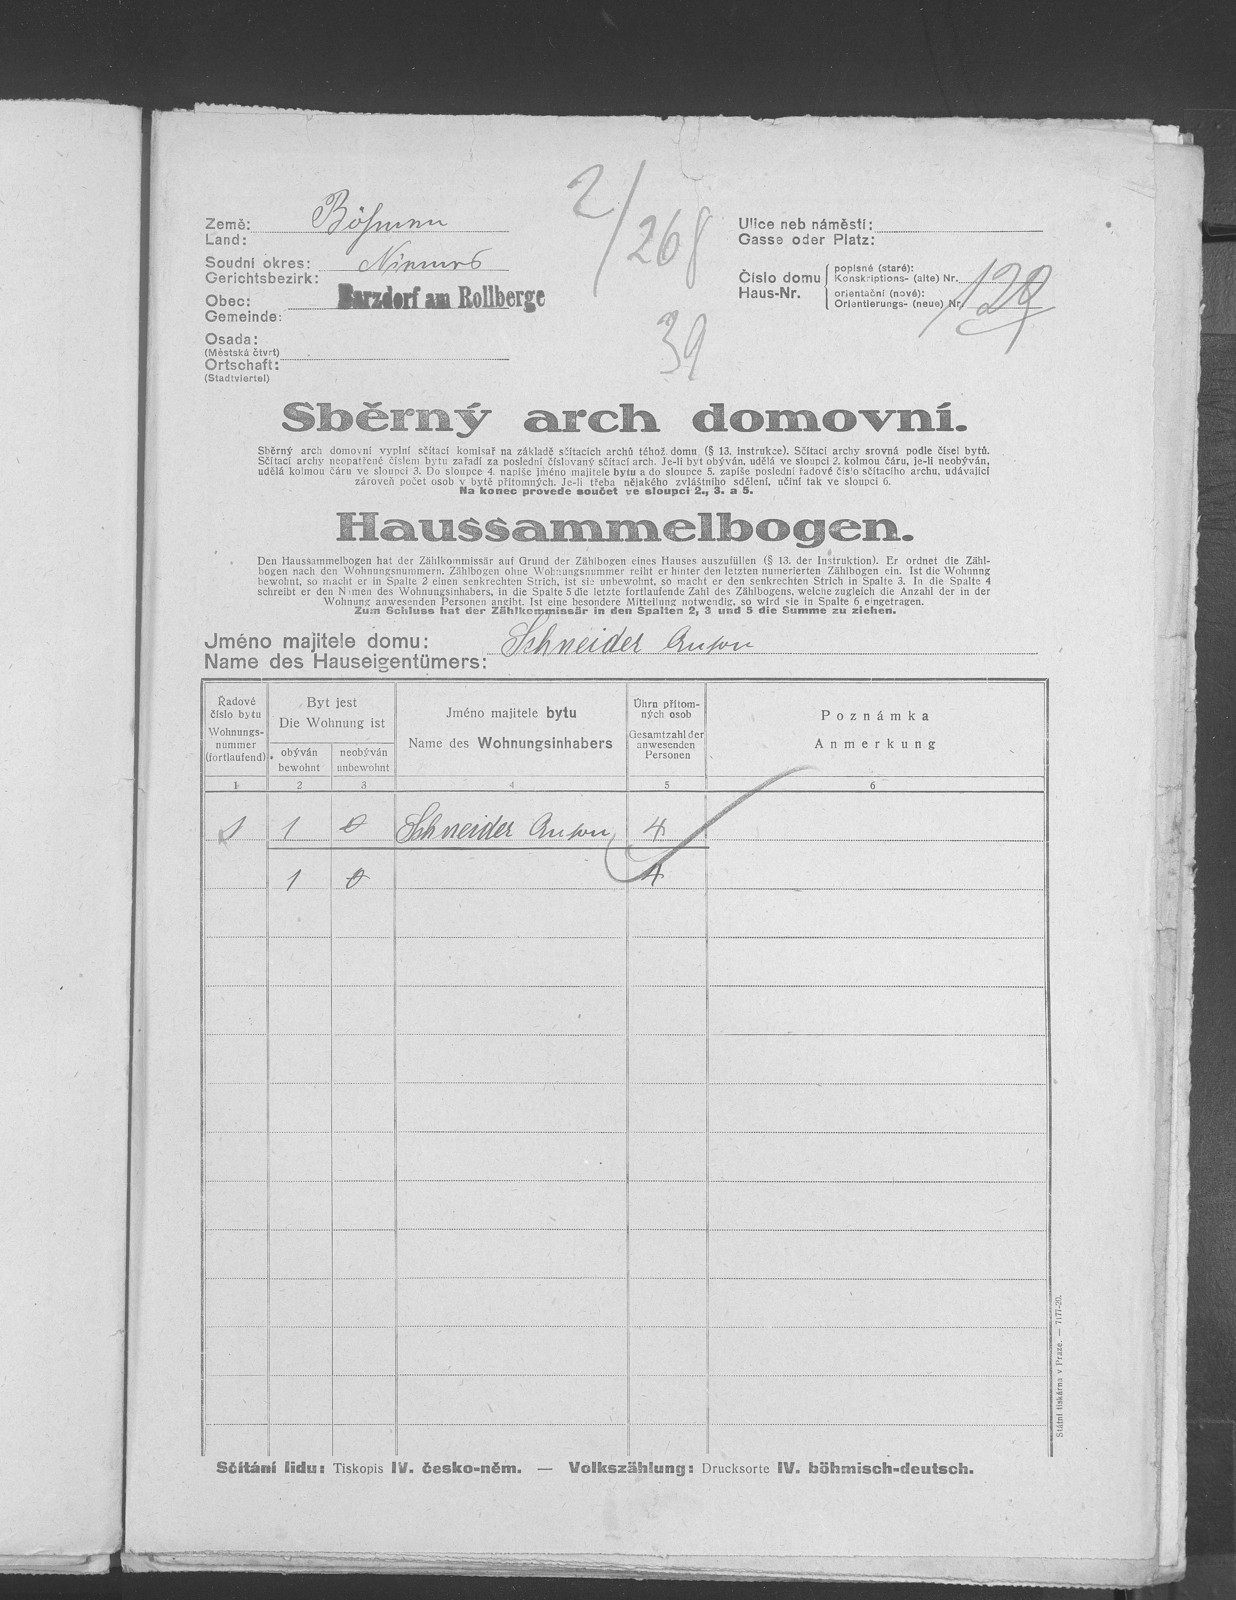 2/268
39
Země: Böhmen
Land:
Soudní okres: Niemes
Gerichtsbezirk:
Obec: Barzdorf am Rollberge
Gemeinde:
Osada:
(Městská čtvrt)
Ortschaft:
(Stadtviertel)
Ulice neb náměstí:
Gasse oder Platz:
Číslo domu
Haus-Nr.
popisné (staré):
Konskriptions- (alte) Nr.
orientační (nové):
Orientierungs- (neue) Nr.
Sběrný arch domovní.
Sběrný arch domovní vyplní sčítací komisař na základě sčítacích archů téhož domu (§ 13. instrukce). Sčítací archy srovná podle čísel bytů.
Sčítací archy neopatřené číslem bytu zařadí za poslední číslovaný sčítací arch. Je-li byt obýván, udělá ve sloupci 2. kolmou čáru, je-li neobýván,
udělá kolmou čáru ve sloupci 3. Do sloupce 4. napíše jméno majitele bytu a do sloupce 5. zapíše poslední řadové číslo sčítacího archu, udávající
zároveň počet osob v bytě přítomných. Je-li třeba nějakého zvláštního sdělení, učiní tak ve sloupci 6.
Na konec provede součet ve sloupci 2., 3. a 5.
Haussammelbogen.
Den Haussammelbogen hat der Zählkommissär auf Grund der Zählbogen eines Hauses auszufüllen (§ 13. der Instruktion). Er ordnet die Zähl-
bogen nach den Wohnungsnummern. Zählbogen ohne Wohnungsnummer reiht er hinter den letzten numerierten Zählbogen ein. Ist die Wohnung
bewohnt, so macht er in Spalte 2 einen senkrechten Strich, ist sie unbewohnt, so macht er den senkrechten Strich in Spalte 3. In die Spalte 4
schreibt er den Namen des Wohnungsinhabers, in die Spalte 5 die letzte fortlaufende Zahl des Zählbogens, welche zugleich die Anzahl der in der
Wohnung anwesenden Personen angibt. Ist eine besondere Mitteilung notwendig, so wird sie in Spalte 6 eingetragen.
Zum Schluss hat der Zählkommissär in den Spalten 2, 3 und 5 die Summe zu ziehen.
Jméno majitele domu: Schneider Anton
Name des Hauseigentümers:
Řadové
číslo bytu
Wohnungs-
nummer
(fortlaufend)
Byt jest
Die Wohnung ist
obýván
bewohnt
neobýván
unbewohnt
Jméno majitele bytu
Name des Wohnungsinhabers
Úhrn přítom-
ných osob
Gesamtzahl der
anwesenden
Personen
Poznámka
Anmerkung
1 2 3 4 5 6
1 1 0 Schneider Anton 4
1 0 4
Státní tiskárna v Praze. — 7177-20.
Sčítání lidu: Tiskopis IV. česko-něm. — Volkszählung: Drucksorte IV. böhmisch-deutsch.